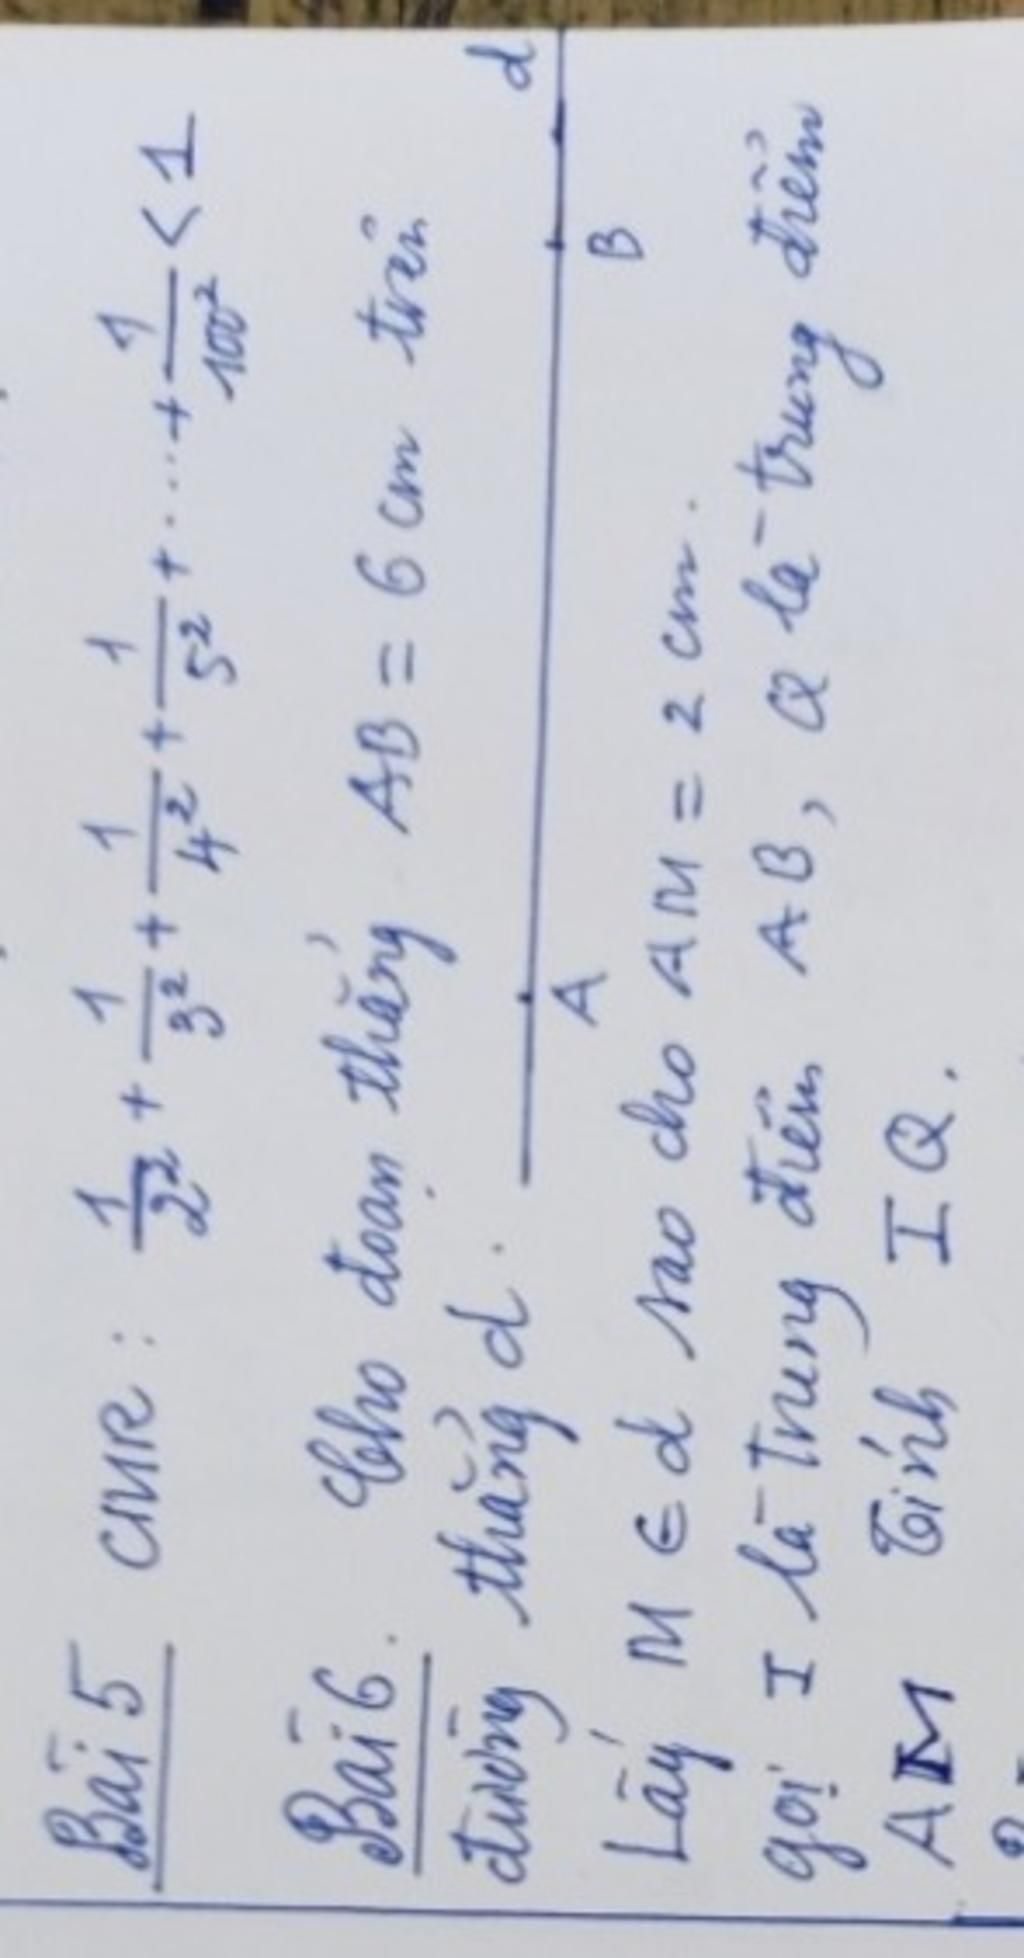 Bài 5 CMR: 1/2² + 1/3² + 1/4² + 1/5² + ... + 1/100² < 1
Bài 6. Cho đoạn thẳng AB = 6 cm trên
đường thẳng d.
d
A B
Lấy M ∈ d sao cho AM = 2 cm.
gọi I là trung điểm AB, Q là trung điểm
AM Tính IQ.